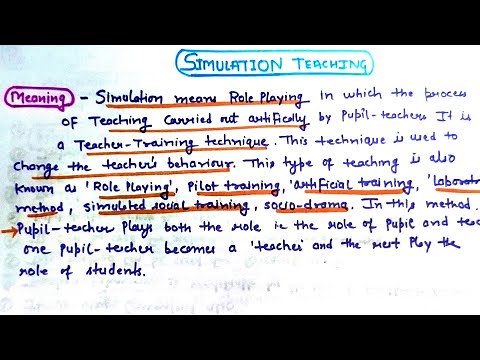 SIMULATION TEACHING
Meaning - Simulation means Role Playing in which the process
of Teaching Carried out artifically by Pupil-teachers It is
a Teacher-Training technique. This technique is used to
change the teacher's behaviour. This type of teaching is also
known as 'Role Playing', Pilot training, 'artificial training, 'Laborator
method, simulated social training, socio-drama. In this method.
→ Pupil-teacher plays both the role i.e the role of Pupil and teac
one Pupil-teacher becomes a 'teacher' and the rest Play the
role of students.